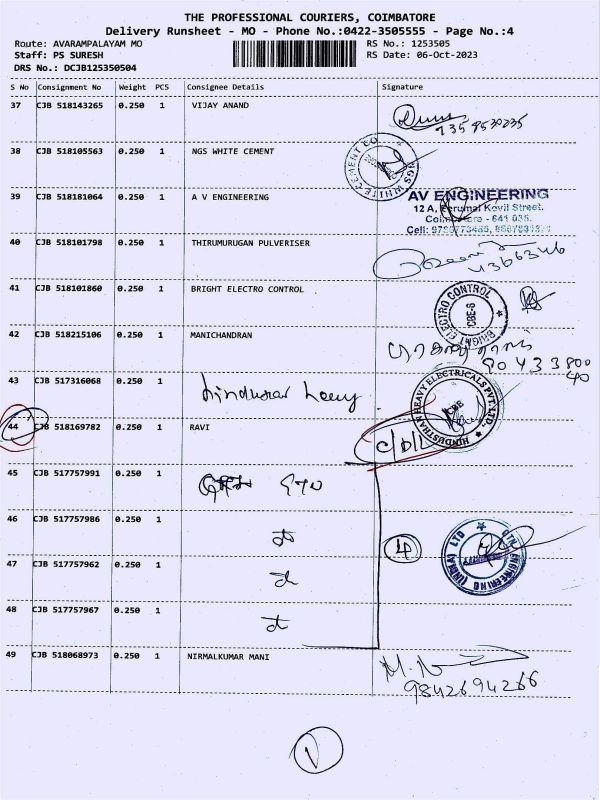 THE PROFESSIONAL COURIERS, COIMBATORE
Delivery Runsheet - MO - Phone No.:0422-3505555 - Page No.:4
Route: AVARAMPALAYAM MO RS No.: 1253505
Staff: PS SURESH RS Date: 06-Oct-2023
DRS No.: DCJB125350504
S No Consignment No Weight PCS Consignee Details Signature
37 CJB 518143265 0.250 1 VIJAY ANAND
9359530235
38 CJB 518105563 0.250 1 NGS WHITE CEMENT
NGS WHITE CEMENT CO
39 CJB 518181064 0.250 1 A V ENGINEERING AV ENGINEERING
12 A, Perumal Kovil Street,
Coimbatore - 641 035.
Cell:
40 CJB 518101798 0.250 1 THIRUMURUGAN PULVERISER
41 CJB 518101860 0.250 1 BRIGHT ELECTRO CONTROL
BRIGHT ELECTRO CONTROL CBE-6
42 CJB 518215106 0.250 1 MANICHANDRAN
90 433 800
40
43 CJB 517316068 0.250 1 hindustan heavy
HINDUSTHAN HEAVY ELECTRICALS PVT. LTD. CBE
44 CJB 518169782 0.250 1 RAVI
45 CJB 517757991 0.250 1
46 CJB 517757986 0.250 1
4
ENGINEERING (INDIA) LTD
47 CJB 517757962 0.250 1
48 CJB 517757967 0.250 1
49 CJB 518068973 0.250 1 NIRMALKUMAR MANI
9842694266